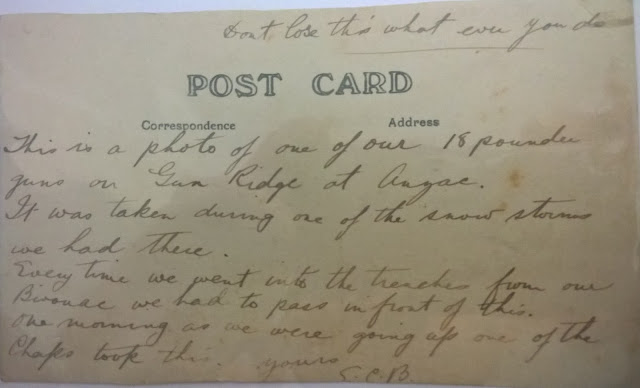 Dont lose this what ever you do
POST CARD
Correspondence
Address
This is a photo of one of our 18 pounder
guns on Gun Ridge at Anzac.
It was taken during one of the snow storms
we had there.
Every time we went into the trenches from our
Bivouac we had to pass in front of this.
One morning as we were going up one of the
Chaps took this. yours
S.C.B.